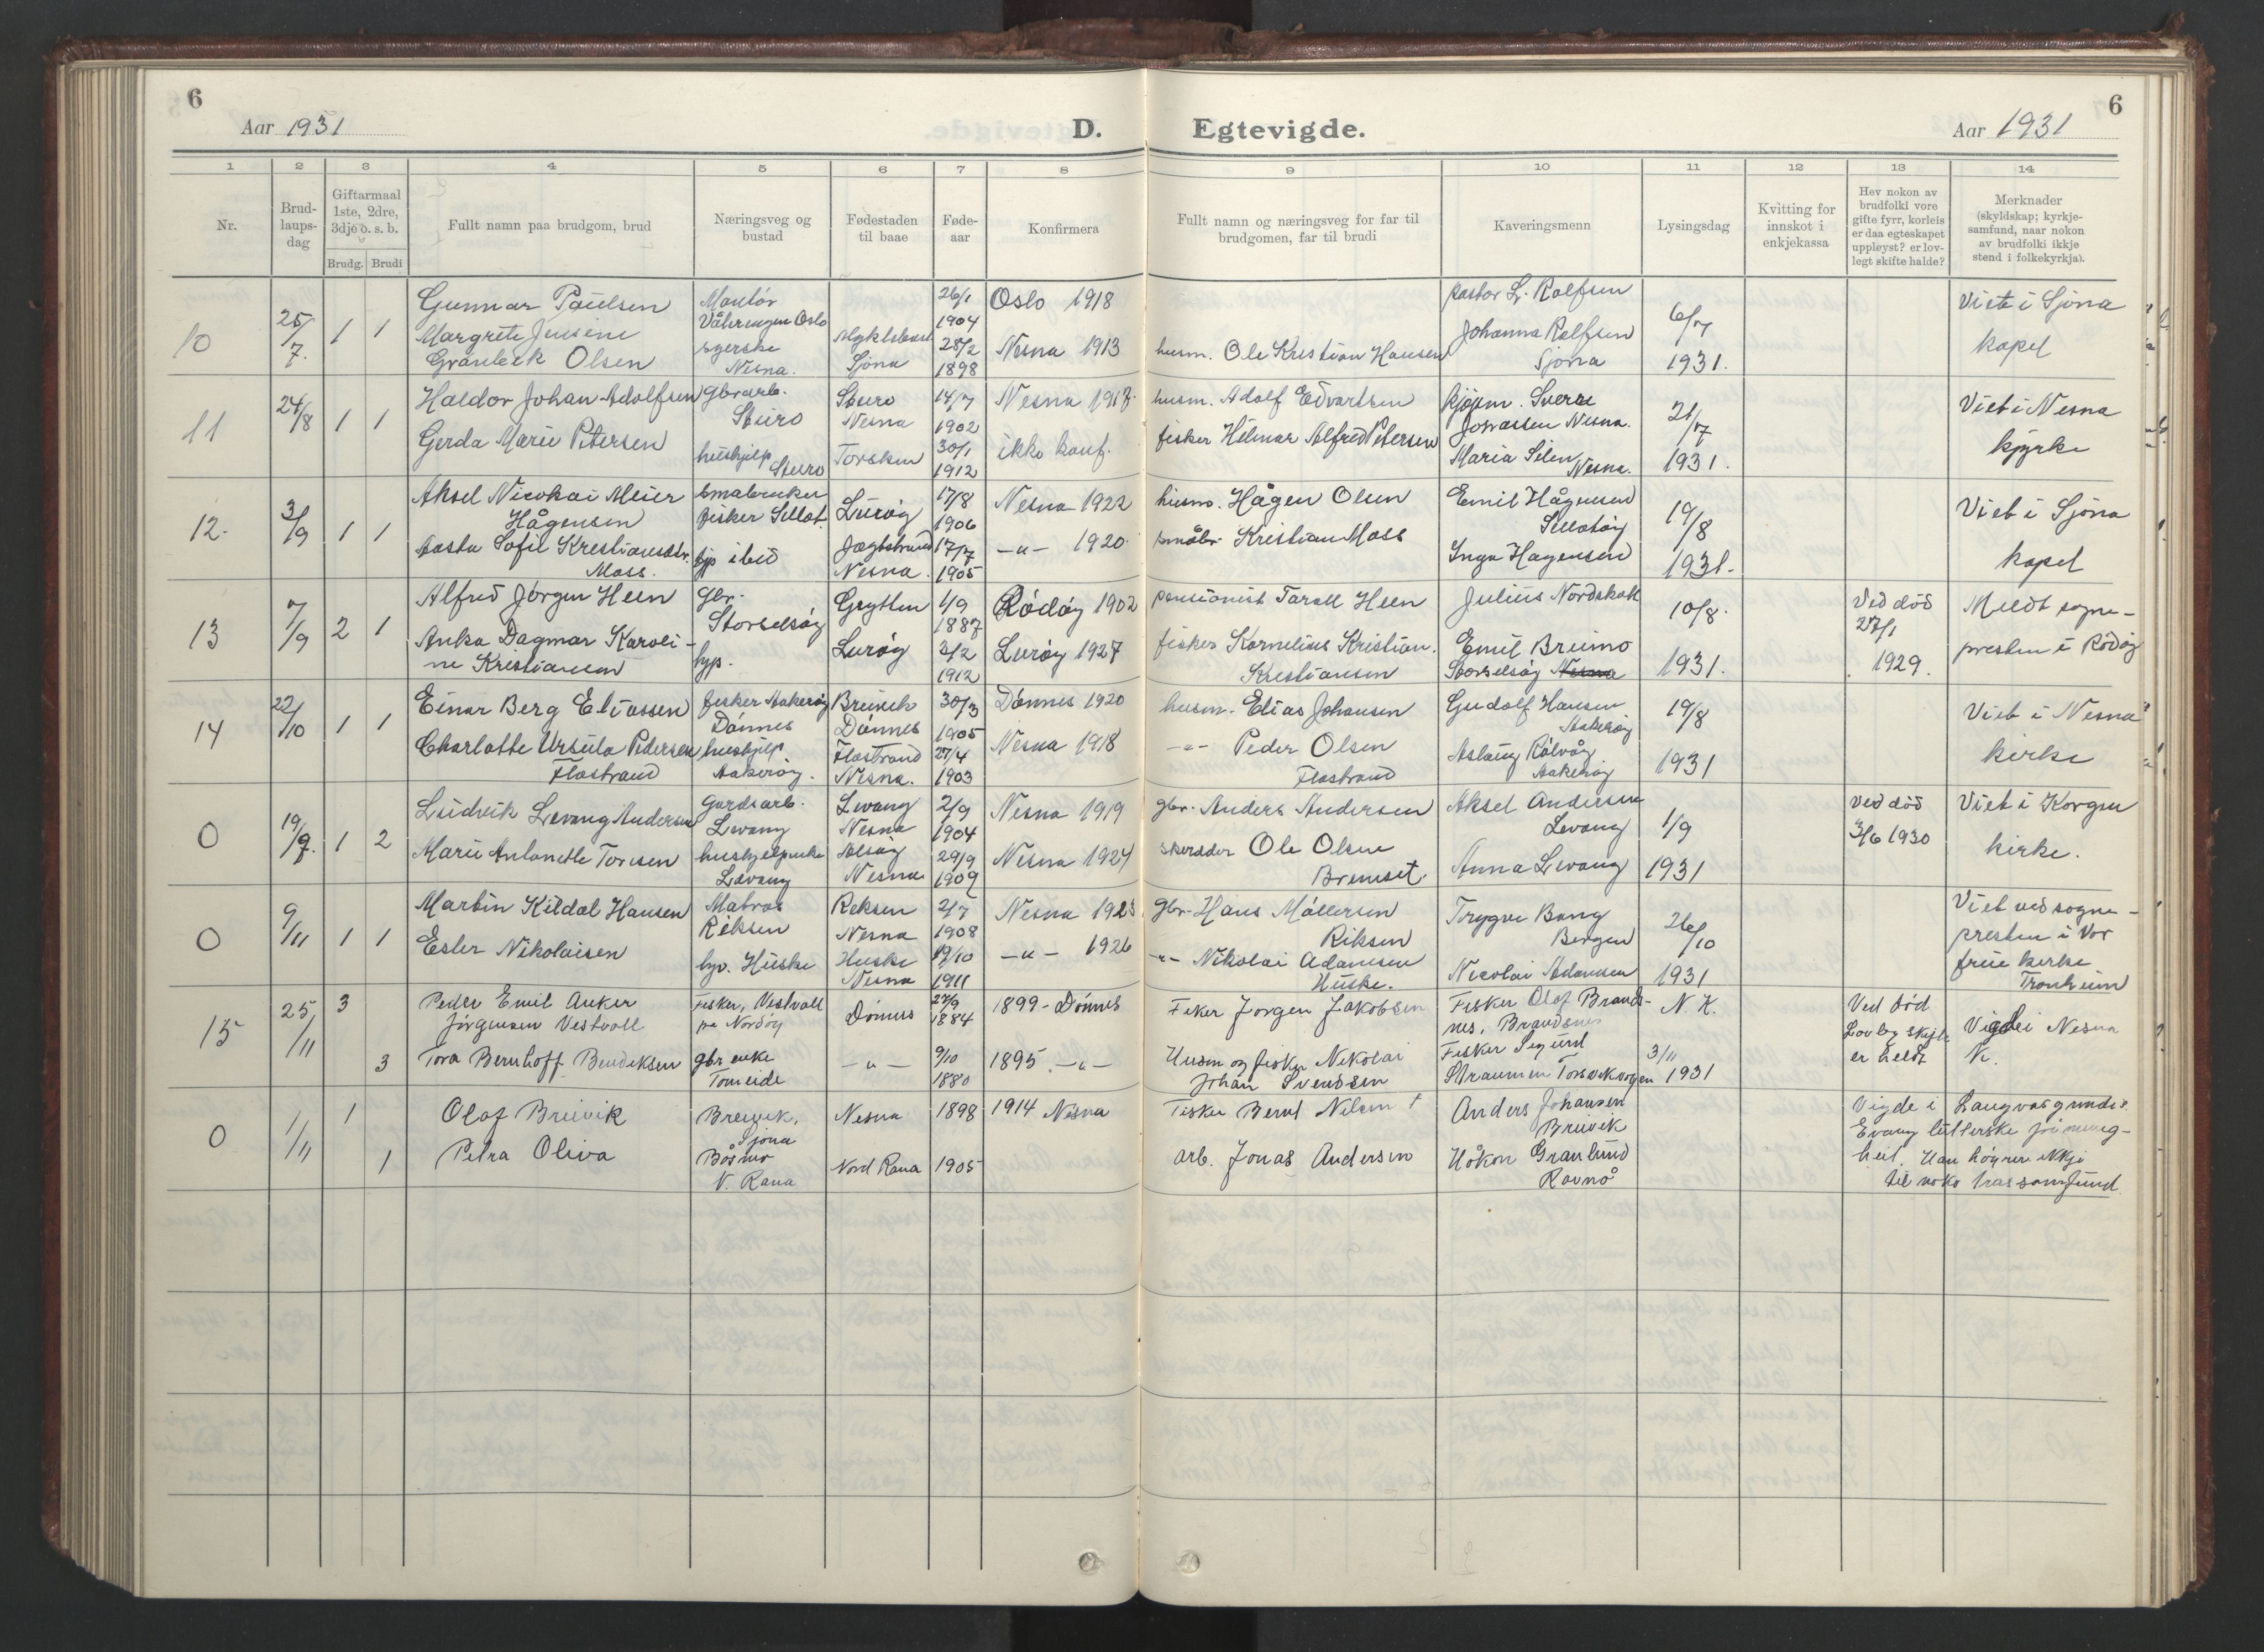 6
Aar 1931
D.
Egtevigde.
Aar 1931
6
1 2 3 4 5 6 7 8 9 10 11 12 13 14
Nr.
Brud-
laups-
dag
Giftarmaal
1ste, 2dre,
3dje o. s. b.
Brudg. Brudi
Fullt namn paa brudgom, brud
Næringsveg og
bustad
Fødestaden
til baae
Føde-
aar
Konfirmera
Fullt namn og næringsveg for far til
brudgomen, far til brudi
Kaveringsmenn
Lysingsdag
Kvitting for
innskot i
enkjekassa
Hev nokon av
brudfolki vore
gifte fyrr, korleis
er daa egteskapet
uppløyst? er lov-
legt skifte halde?
Merknader
(skyldskap; kyrkje-
samfund, naar nokon
av brudfolki ikkje
stend i folkekyrkja).
10
25/7.
1 1
Gunnar Paulsen
Margrete Jensine
Granbeck Olsen
Montör
Vålerengen Oslo
syerske
Nesna.
Sjona
26/1
1904
28/2
1898
Oslo 1918
Nesna 1913
husm. Ole Kristian Hansen
pastor L. Rolfsen
Johanna Rolfsen
Sjona
6/7
1931.
Viet i Sjona
kapel
11
24/8
1 1
Haldor Johan Adolfsen
Gerda Marie Petersen
gbrarb.
Sturo
hushjelp
Sturo
Sturo
Nesna
Torsken
14/7
1902
30/1
1912
Nesna 1917.
ikke konf.
husm. Adolf Edvartsen
fisker Hilmar Alfred Petersen
kjøpm. Sverre
Jonassen Nesna.
Maria Selen Nesna.
21/7
1931.
Viet i Nesna
kjyrke
12.
3/9
1 1
Aksel Nicokai Meier
Hågensen
Aasta Sofie Kristiansdtr.
Moss.
Småbruker
fisker Sellöt.
hjp ibid
Luröy
Jægtstrand
Nesna.
17/8
1906
17/7
1905
Nesna 1922
-"- 1920.
husm. Hågen Olsen
småbr. Kristian Moss
Emil Hågensen
Sellotöy
Inga Hagensen
19/8
1931.
Viet i Sjona
kapel
13
7/9
2 1
Alfred Jörgen Heen
Anka Dagmar Karoli-
ne Kristiansen
Gbr.
Storselsöy
hjp.
Grytten
Luröy
1/9
1887
2/2
1912
Rödöy 1902
Luröy 1927
pensionist Tarall Heen
fisker Kornelius Kristian.
Kristiansen
Julius Nordskot
Emil Breimo
Storselsöy Nesna
10/8.
1931.
Ved död
27/1
1929.
Meldt sogne-
presten i Rödöy
14
22/10
1 1
Einar Berg Eliassen
Charlotte Ursula Pedersen
Flostrand
fisker Aakeröy
Dönnes
hushjelp
Aakeröy.
Breivik
Dönnes
Flostrand
Nesna.
30/3
1905
27/4
1903
Dönnes 1920
Nesna 1918
husm. Elias Johansen
-"- Peder Olsen
Flostrand
Gudolf Hansen
Aakeröy
Aslaug Rölvåg
Aakeröy
19/8
1931
Viet i Nesna
kirke
0
19/9.
1 2
Ludvik Levang Andersen
Marie Antonette Toresen
Gardsarb.
Levang
hushjelpenke
Levang
Levang
Nesna
Alsöy
Nesna
2/9
1904
29/9
1909
Nesna 1919
Nesna 1924
gbr. Anders Andersen
skredder Ole Olsen
Bremset.
Aksel Andersen
Levang
Anna Levang
1/9
1931
Ved död
3/6 1930
Viet i Korgen
kirke.
0
9/11
1 1
Martin Kildal Hansen
Ester Nikolaisen
Matros
Reksen
hjp. Huske
Reksen
Nesna
Huske
Nesna
2/7
1908
19/10
1911
Nesna 1923
-"- 1926
gbr. Hans Möllersen
Riksen
-"- Nikolai Adamsen
Huske.
Trygve Bang
Bergen
Nicolai Adamsen
26/10
1931
Viet ved sogne-
presten i Vor
frue kirke
Tronheim
15
25/11
3
3
Peder Emil Anker
Jörgensen Vestvoll
Tora Bernhoff Bendiksen
Fisker, Vestvoll
på Nordöy
gbr enke
Tomeide
Dönnes
-"-
27/9
1884
9/10
1880
1899 - Dönnes
1895 -"-
Fisker Jorgen Jakobsen
Husm og fisker Nikolai
Johan Svendsen
Fisker Olaf Brands-
nes, Brandsnes
Fisker Sigurd
Straumen Torsvikvogen
N. K.
3/11
1931
Ved död
Lovleg skifte
er heldt
Vigde i Nesna
K.
0
1/11
1
1
Olaf Breivik
Petra Oliva
Breivik,
Sjona
Båsmo
N. Rana
Nesna
Nord Rana
1898
1905
1914 Nesna
Fisker Bernt Nilsen †
arb. Jonas Andersen
Anders Johansen
Breivik
Håkon Granlund
Ravnå
Vigde i Langvasgrunds
Evang lutterske frimenig-
heit. Han höyrer ikkje
til noko trassamfund